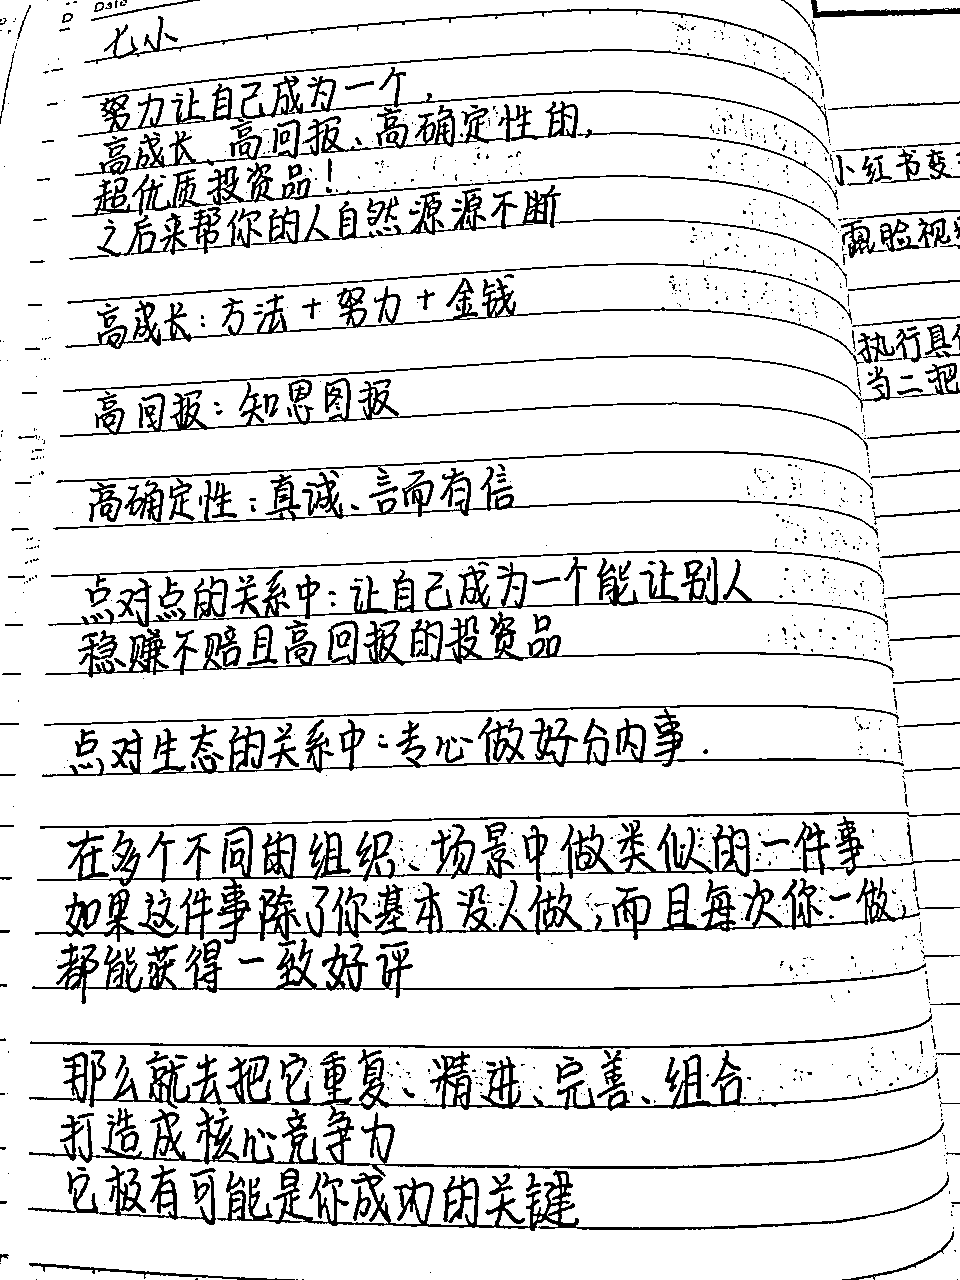 Date
七小
努力让自己成为一个,
高成长、高回报、高确定性的,
超优质投资品!
之后来帮你的人自然源源不断
高成长:方法+努力+金钱
高回报:知恩图报
高确定性:真诚、言而有信
点对点的关系中:让自己成为一个能让别人
稳赚不赔且高回报的投资品
点对生态的关系中:专心做好台内事.
在多个不同的组织、场景中做类似的一件事
如果这件事除了你基本没人做,而且每次你一做,
都能获得一致好评
那么就去把它重复、精进、完善、组合
打造成核心竞争力
它极有可能是你成功的关键
小红书变
露脸视
执行具
当二把